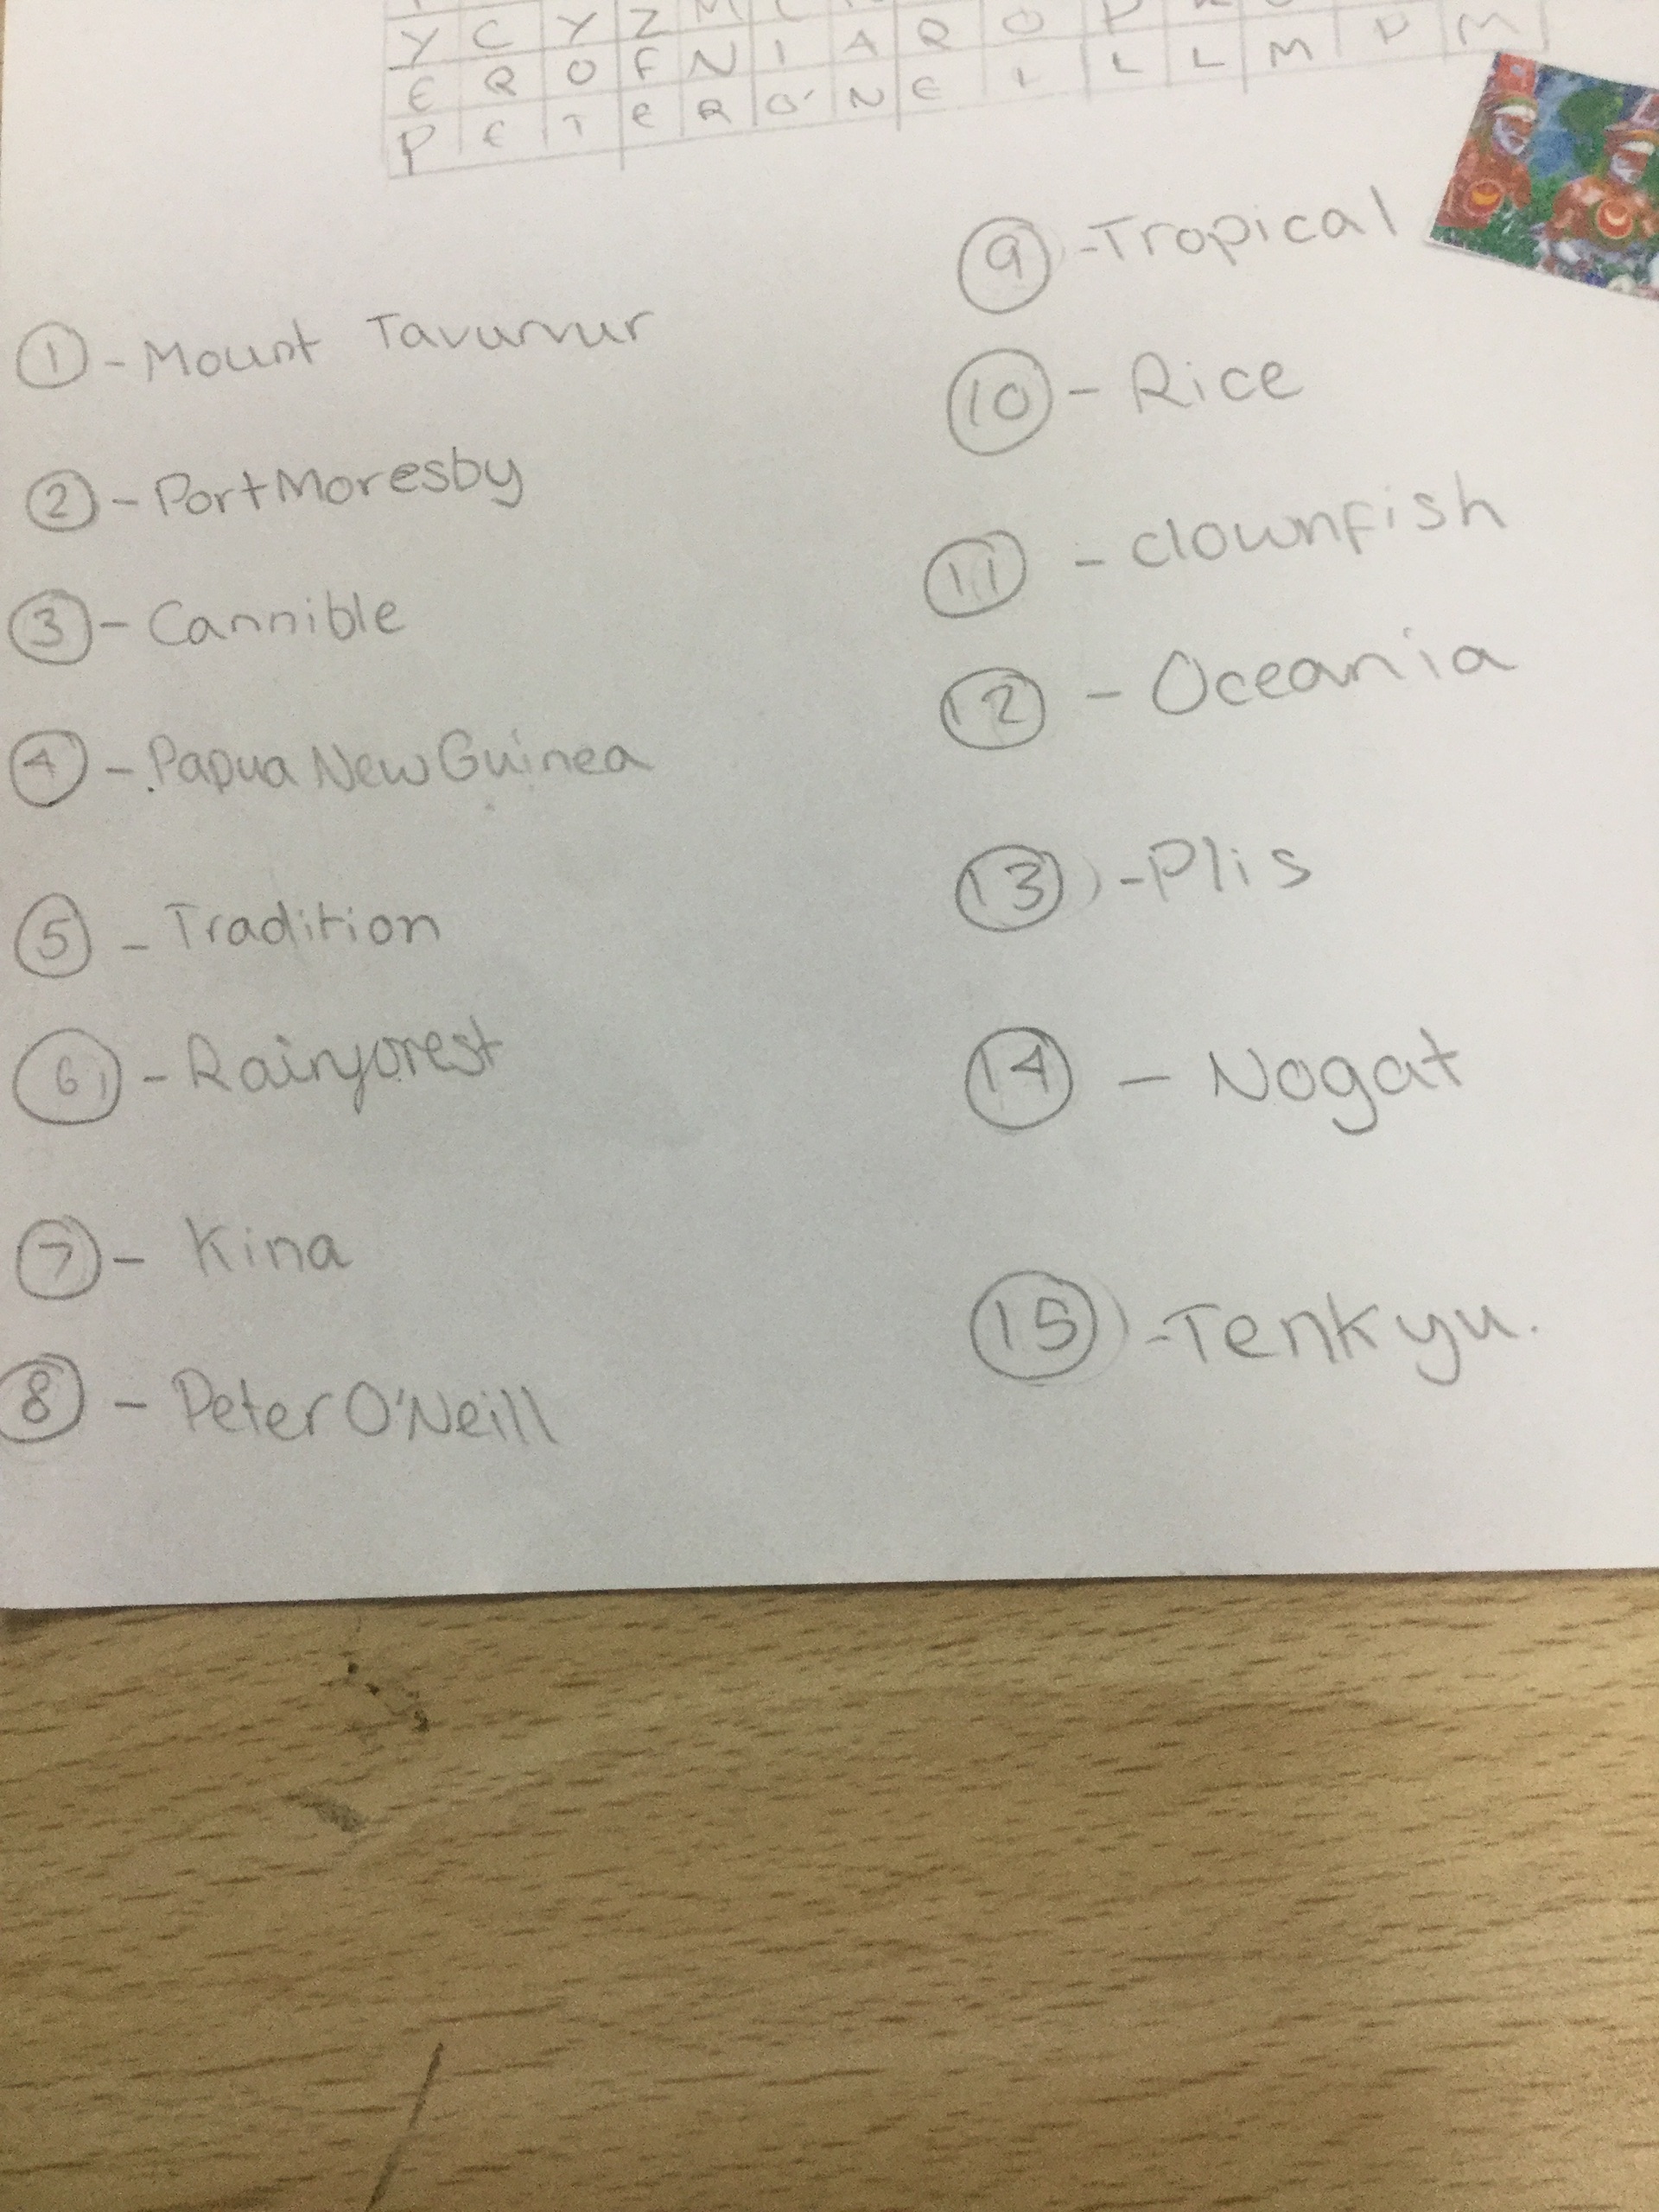 Y C Y Z M
E R O F N I A R O P R
P E T E R O' N E I L L M P M
① - Mount Tavurvur
② - Port Moresby
③ - Cannible
④ - Papua New Guinea
⑤ - Tradition
⑥ - Rainforest
⑦ - Kina
⑧ - Peter O'Neill
⑨ - Tropical
⑩ - Rice
⑪ - clownfish
⑫ - Oceania
⑬ - Plis
⑭ - Nogat
⑮ - Tenkyu.